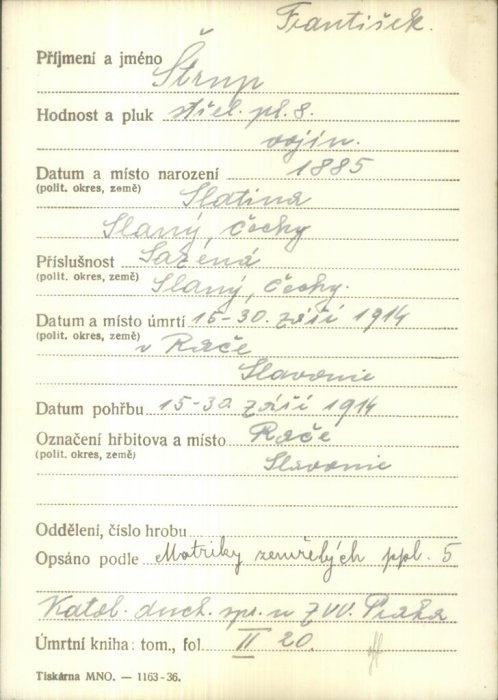 František.
Příjmení a jméno Štrup
Hodnost a pluk střel. pl. 8.
vojín.
Datum a místo narození 1885
(polit. okres, země) Slatina
Slaný, Čechy
Příslušnost Sazená
(polit. okres, země) Slaný, Čechy.
Datum a místo úmrtí 15-30. září 1914
(polit. okres, země) v Rače
Slavonie
Datum pohřbu 15-30. září 1914
Označení hřbitova a místo Rače
(polit. okres, země) Slavonie
Oddělení, číslo hrobu
Opsáno podle Matriky zemřelých ppl. 5
Katol. duch. spr. u ZVV. Praha
Úmrtní kniha: tom., fol. II 20.
Tiskárna MNO. — 1163-36.